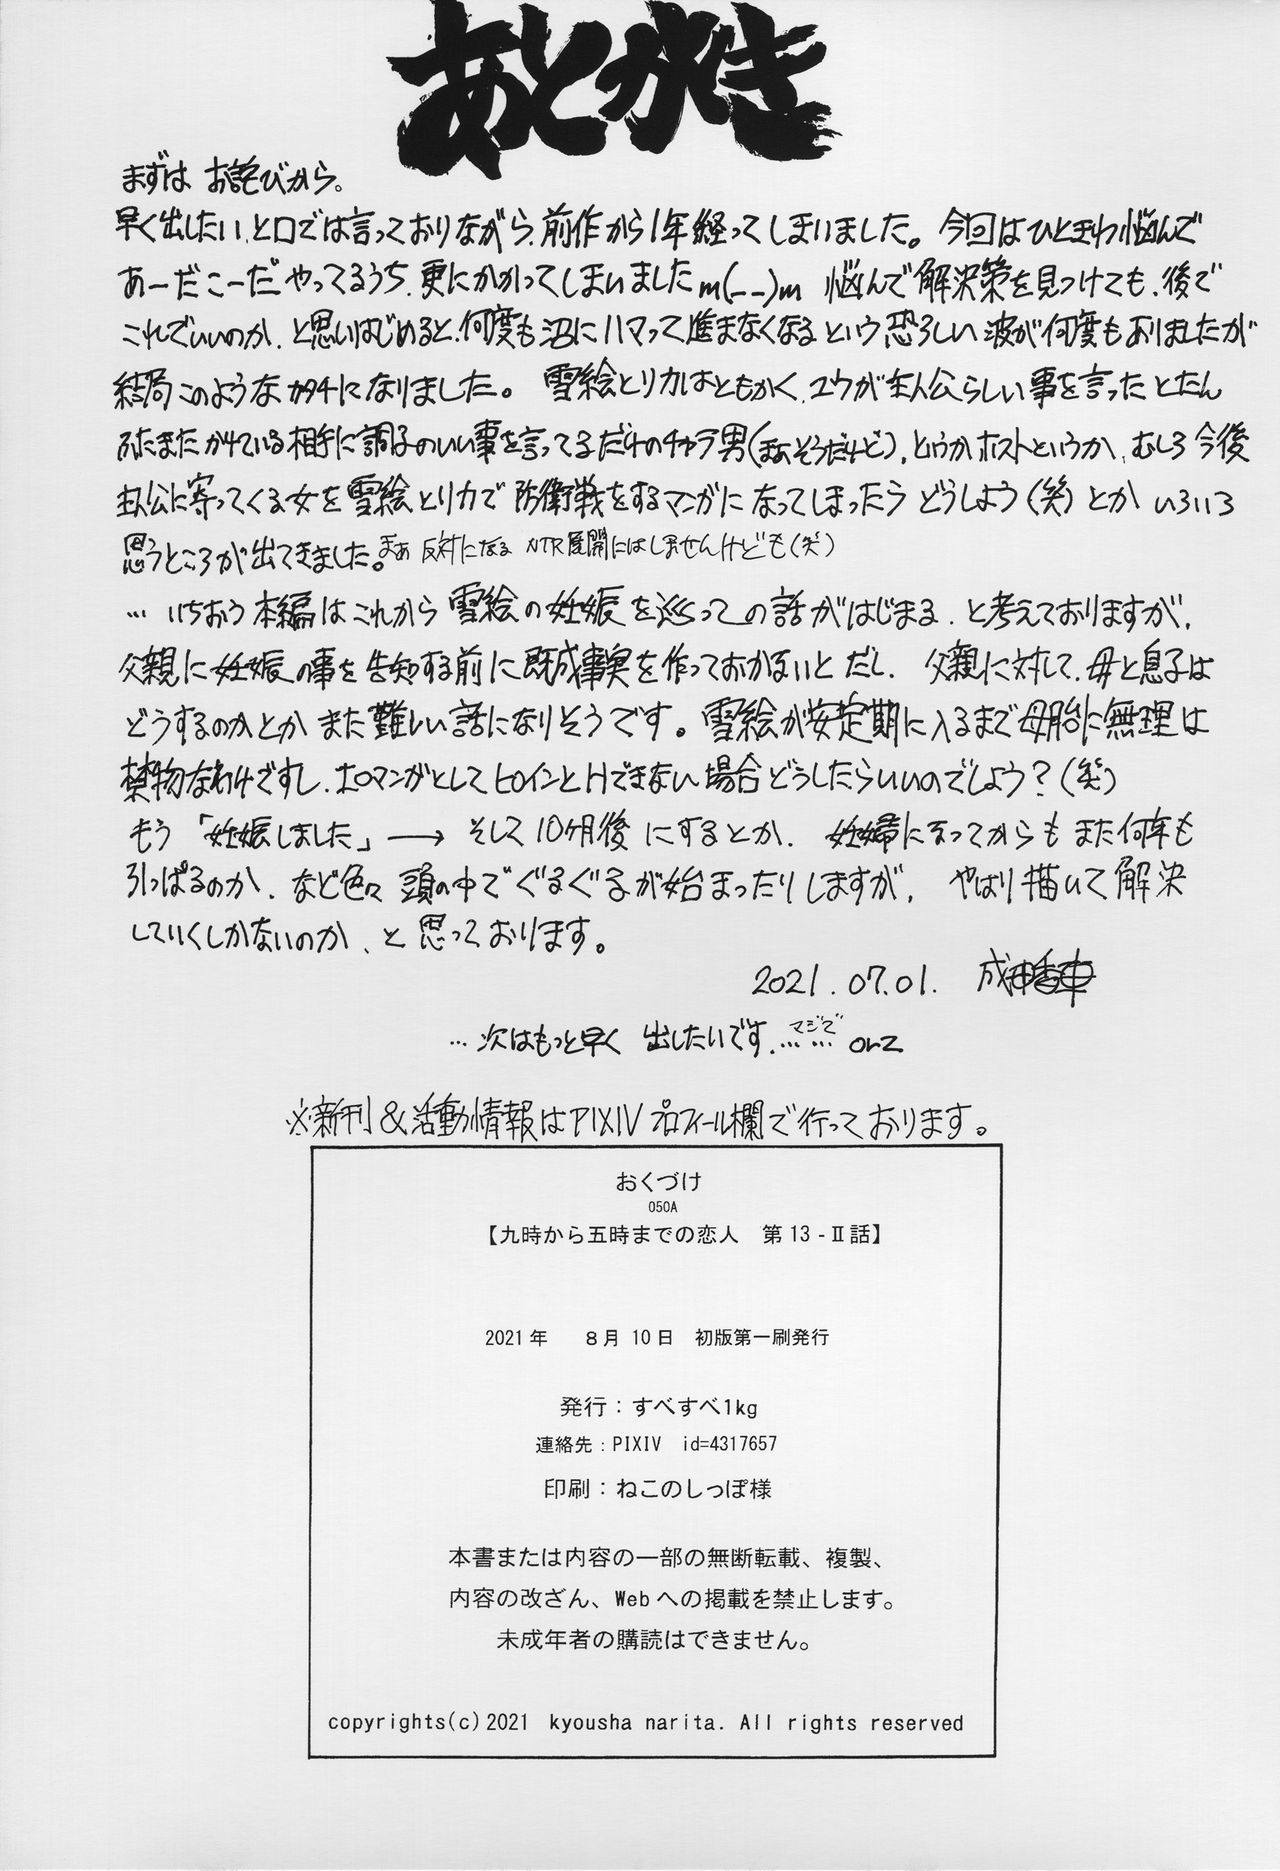 あとがき
まずは お詫びから。
早く出したい、と口では言っておりながら、前作から1年経ってしまいました。今回はひときわ悩んで
あーだこーだ やってるうち、更にかかってしまいましたm(_ _)m 悩んで解決策を見つけても、後で
これでいいのか、と思いはじめると、何度も沼にハマって進まなくなる という恐ろしい波が何度もありましたが
結局このようなカタチになりました。 雪絵とリカはともかく、ユウが主人公らしい事を言ったとたん
ふたまたかけている相手に調子のいい事を言ってるだけのチャラ男(まあそうだけど)、というかホストというか、むしろ今後
主人公に寄ってくる女を雪絵とリカで防衛戦をするマンガになってしまったらどうしよう(笑)とか いろいろ
思うところが出てきました。まあ 反対になる NTR展開にはしませんけども(笑)
… いちおう本編はこれから雪絵の妊娠を巡っての話がはじまる、と考えておりますが、
父親に妊娠の事を告知する前に既成事実を作っておかないとだし、父親に対して、母と息子は
どうするのかとか また難しい話になりそうです。雪絵が安定期に入るまで母胎に無理は
禁物なわけですし、エロマンガとしてヒロインとHできない場合どうしたらいいのでしょう?(笑)
もう「妊娠しました」→ そして10ヶ月後 にするとか、妊婦になってからも また何年も
引っぱるのか、など色々 頭の中でぐるぐるが始まったりしますが、やはり描いて解決
していくしかないのか、と思っております。
2021.07.01. 成田香車
… 次はもっと早く 出したいです、マジで…… orz
※新刊&活動情報はPIXIVプロフィール欄で行っております。
おくづけ
050A
【九時から五時までの恋人 第13-Ⅱ話】
2021年 8月10日 初版第一刷発行
発行：すべすべ1kg
連絡先：PIXIV id=4317657
印刷：ねこのしっぽ様
本書または内容の一部の無断転載、複製、
内容の改ざん、Webへの掲載を禁止します。
未成年者の購読はできません。
copyrights(c)2021 kyousha narita. All rights reserved